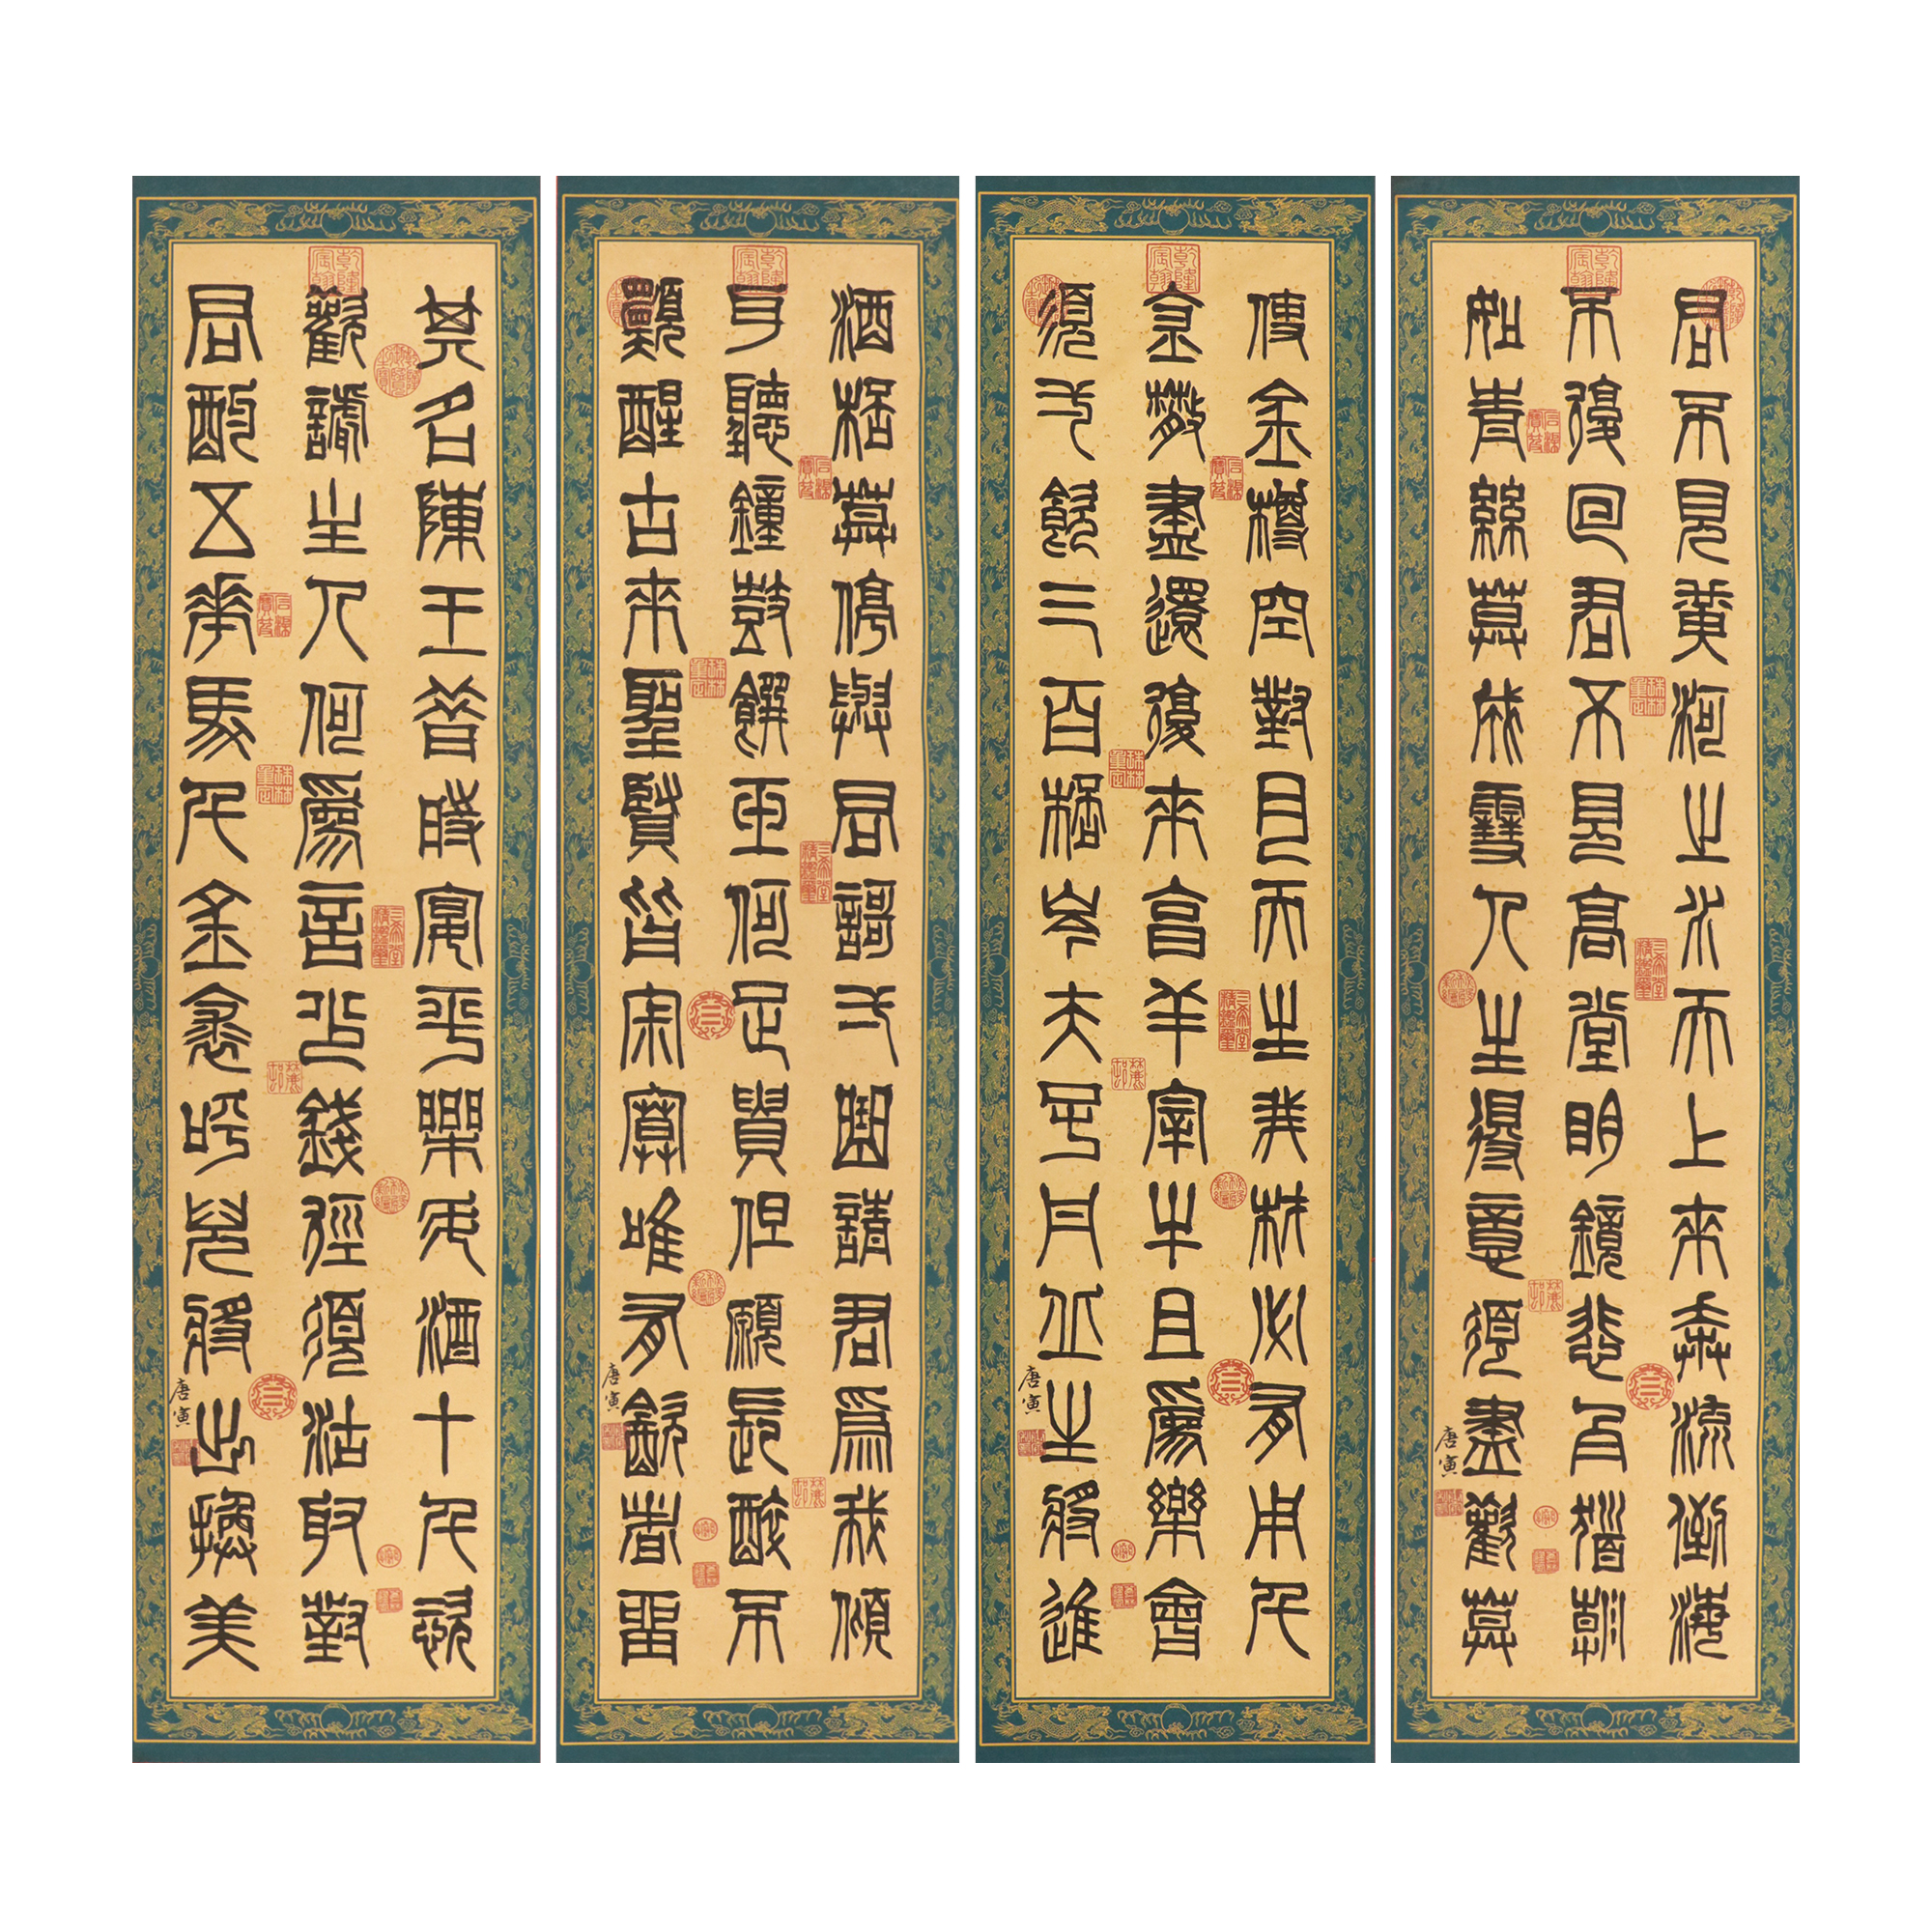 君不見黃河之水天上來奔流到海
不復回君不見高堂明鏡悲白髮朝
如青絲暮成雪人生得意須盡歡莫
唐寅
使金樽空對月天生我材必有用千
金散盡還復來烹羊宰牛且爲樂會
須一飲三百杯岑夫子丹丘生將進
唐寅
酒杯莫停與君歌一曲請君爲我傾
耳聽鐘鼓饌玉何足貴但願長醉不
願醒古來聖賢皆寂寞唯有飲者留
唐寅
其名陳王昔時宴平樂斗酒十千恣
歡謔主人何爲言少錢徑須沽取對
君酌五花馬千金裘呼兒將出換美
唐寅